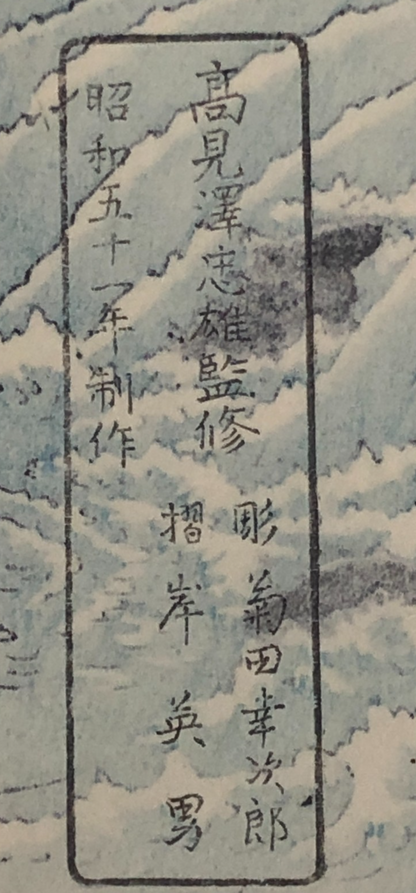 高見澤忠雄監修
彫 菊田幸次郎
摺 岸英男
昭和五十一年制作